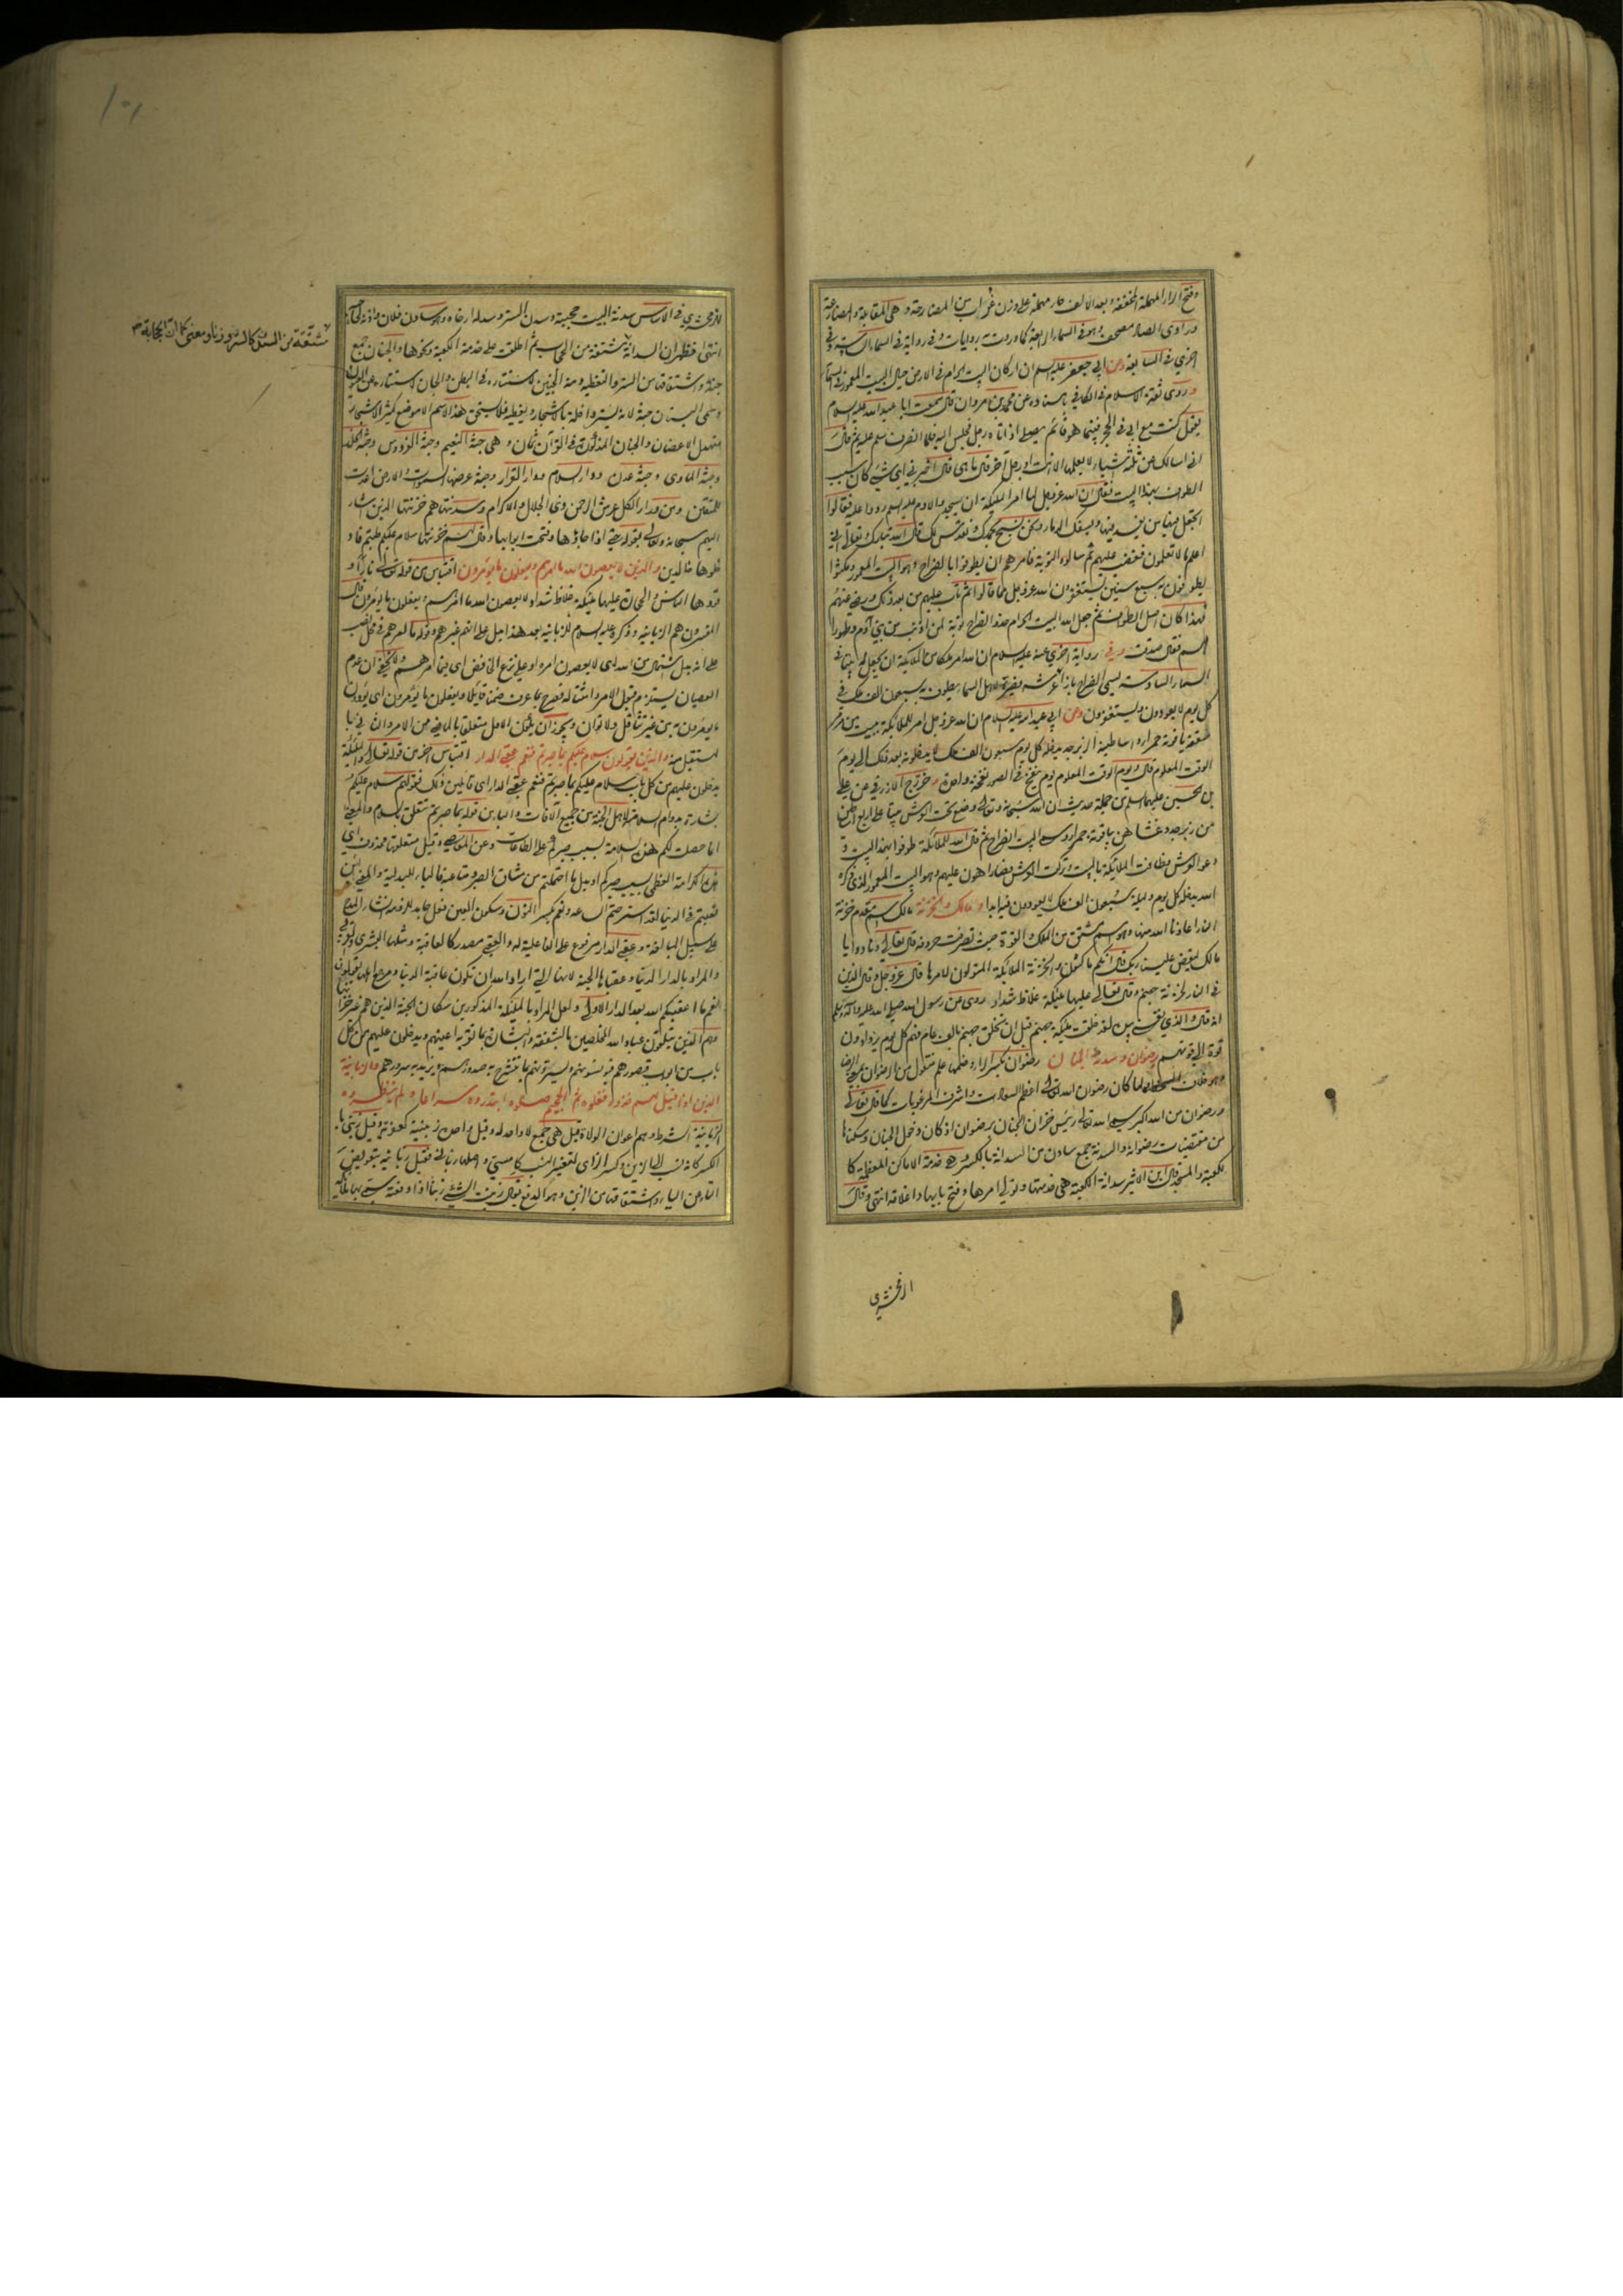 وفتح الراء المهملة المخففة وبعد الألف حاء مهملة على وزن غراب من المضارحة وهي المقابلة والمضارعة
وراوي الصاد مصحف وهو في السماء الرابعة كما وردت به روايات وفي رواية في السماء السادسة وفي
اخرى في السابعة وعن ابي جعفر عليه السلام ان اركان البيت الحرام في الارض حيال البيت المعمور في السماء
وروى ثقة الاسلام في الكافي باسناده عن محمد بن مروان قال سمعت ابا عبد الله عليه السلام
يقول كنت مع ابي في الحجر فبينما هو قائم يصلي اذ اتاه رجل فجلس اليه فلما انصرف سلم عليه ثم قال
اني اسالك عن ثلثة اشياء لا يعلمها الا انت او رجل آخر قال ما هي قال اخبرني اي شيء كان سبب
الطواف بهذا البيت فقال ان الله عز وجل لما امر الملئكة ان يسجدوا لادم عليه السلام ردوا عليه فقالوا
اتجعل فيها من يفسد فيها ويسفك الدماء ونحن نسبح بحمدك ونقدس لك قال الله تبارك وتعالى اني
اعلم ما لا تعلمون فغضب عليهم ثم سالوه التوبة فامرهم ان يطوفوا بالضراح وهو البيت المعمور ومكثوا
يطوفون به سبع سنين يستغفرون الله عز وجل مما قالوا ثم تاب عليهم من بعد ذلك ورضي عنهم
فهذا كان اصل الطواف ثم جعل الله البيت الحرام حذو الضراح توبة لمن اذنب من بني آدم وطهورا
لهم فقال صدقت وفي رواية اخرى عنه عليه السلام ان الله امر ملكا من الملائكة ان يجعل له بيتا في
السماء السادسة يسمى الضراح بازاء عرشه فصيره لاهل السماء يطوف به سبعون الف ملك في
كل يوم لا يعودون ويستغفرون وعن ابي عبد الله عليه السلام ان الله عز وجل امر الملائكة ببيت من مرمر
سقفه ياقوتة حمراء واساطينه الزبرجد يدخله كل يوم سبعون الف ملك لا يدخلونه بعد ذلك الى يوم
الوقت المعلوم قال ويوم الوقت المعلوم يوم ينفخ في الصور نفخة واحدة واخرج الازرقي عن علي
بن الحسين عليهما السلام من جملة حديث ان الله سبحانه وتعالى وضع تحت العرش بيتا على اربع اساطين
من زبرجد وغشاهن بياقوتة حمراء وسمي البيت الضراح ثم قال الله للملائكة طوفوا بهذا البيت و
دعوا العرش فطافت الملائكة بالبيت وتركت العرش فصار اهون عليهم وهو البيت المعمور الذي ذكره
الله يدخله كل يوم وليلة سبعون الف ملك لا يعودون فيه ابدا ومالك والخزنة مالك اسم مقدم خزنة
النار اعاذنا الله منها وهو اسم مشتق من الملك القوة حيث تصرفت حروفه قال تعالى ونادوا يا
مالك ليقض علينا ربك قال انكم ماكثون والخزنة الملائكة المتولون لامرها قال عز وجل وقال الذين
في النار لخزنة جهنم وقال تعالى عليها ملئكة غلاظ شداد روي عن رسول الله صلى الله عليه وآله وسلم
انه قال والذي نفسي بيده لقد خلقت ملئكة جهنم قبل ان تخلق جهنم بالف عام فهم كل يوم يزدادون
قوة الى قوتهم ورضوان وسدنة الجنان رضوان بكسر الراء وضمها علم منقول من الرضوان بمعنى الرضا
وهو خلاف السخط ولما كان رضوان الله تعالى اعظم السعادات واشرف المرغوبات كما قال تعالى
ورضوان من الله اكبر سمى الله تعالى رئيس خزان الجنان برضوان اذ كان دخول الجنان وسكناها
من مقتضيات رضوانه والسدنة جمع سادن من السدانة بالكسر وهي خدمة الاماكن المعظمة كا
لكعبة والمسجد قال ابن الاثير سدانة الكعبة هي خدمتها وتولي امرها وفتح بابها واغلاقه انتهى وقال
الزمخشري
الزمخشري في الاساس سدنة البيت حجبته وسدن الستر وسدله ارخاه وهو سادن فلان وآذنه لحاجبه
انتهى فظهر ان السدانة مشتقة من الحجاب ثم اطلقت على خدمة الكعبة ونحوها والجنان جمع
جنة واشتقاقها من الستر والتغطية ومنه الجنين لاستتاره في البطن والجان لاستتاره عن العيون
وسمي البستان جنة لانه يستر داخله بالاشجار ويغطيه فلا يستحق هذا الاسم الا موضع كثير الاشجار
متهدل الاغصان والجنان المذكورة في القرآن ثمان وهي جنة النعيم وجنة الفردوس وجنة الخلد
وجنة الماوى وجنة عدن ودار السلام ودار القرار وجنة عرضها السموات والارض اعدت
للمتقين ومن وراء الكل عرش الرحمن ذي الجلال والاكرام وسدنتها هم خزنتها الذين اشار
اليهم سبحانه وتعالى بقوله حتى اذا جاؤها وفتحت ابوابها وقال لهم خزنتها سلام عليكم طبتم فاد
خلوها خالدين والذين لا يعصون الله ما امرهم ويفعلون ما يؤمرون اقتباس من قوله تعالى نارا و
قودها الناس والحجارة عليها ملئكة غلاظ شداد لا يعصون الله ما امرهم ويفعلون ما يؤمرون قال
المفسرون هم الزبانية وذكره عليه السلام للزبانية بعد هذا يدل على انهم غيرهم وقوله ما امرهم في محل النصب
على انه بدل اشتمال من الله اي لا يعصون امره او على نزع الخافض اي فيما امرهم ولا يخفى ان عدم
العصيان يستلزم قبول الامر وامتثاله فصرح بما عرف ضمنا قائلا ويفعلون ما يؤمرون اي يؤدون
ما يؤمرون به من غير تثاقل ولا توان ويجوز ان يكون الاول متعلقا بالماضي من الامر والثاني بما
يستقبل منه والذين يقولون سلام عليكم بما صبرتم فنعم عقبى الدار اقتباس آخر من قوله تعالى والملئكة
يدخلون عليهم من كل باب سلام عليكم بما صبرتم فنعم عقبى الدار اي قائلين ذلك فقولهم سلام عليكم
بشارة بدوام السلامة لاهل الجنة من جميع الآفات والباء من قوله بما صبرتم تتعلق بالسلام والمعنى
انما حصلت لكم هذه السلامة بسبب صبركم على الطاعات وعن المعاصي وقيل متعلقها محذوف اي
هذه الكرامة العظمى بسبب صبركم او بدل ما احتملتم من مشاق الصبر ومتاعبه فالباء للبدلية والمعنى لئن
تعبتم في الدنيا لقد استرحتم الساعة ونعم بكسر النون وسكون العين فعل جامد لازم لانشاء المدح
على سبيل المبالغة وعقبى الدار مرفوع على الفاعلية له والعقبى مصدر كالعاقبة ومثلها البشرى والقربى
والمراد بالدار الدنيا وعقباها الجنة لانها التي اراد الله ان تكون عاقبة الدنيا ومرجع اهلها يقولون
نعم ما اعقبكم الله بعد الدار الاولى ولعل المراد بالملئكة المذكورين سكان الجنة الذين هم غير خزانها
وهم الذين يتلقون عباد الله المخلصين بالشفقة والبشارة بما تقر به اعينهم ويدخلون عليهم من كل
باب من ابواب قصورهم فيؤنسونهم ويسرونهم بما تنشرح به صدورهم ويزيد به سرورهم والزبانية
الذين اذا قيل لهم خذوه فغلوه ثم الجحيم صلوه ابتدروه سراعا ولم ينظروه
الزبانية الشرط وهم اعوان الولاة قيل هي جمع لا واحد له وقيل واحده زبنية كعفرية وقيل زبني با
لكسر كانه نسب الى الزبن وكسر الزاي لتغيير النسب كامسي واصلها زباني فقيل زبانية بتعويض
التاء عن الياء واشتقاقها من الزبن وهو الدفع يقال زبنت الشيء زبنا اذا دفعته سمي بها ملائكة
مشتقة من السدن كالستر وزنا ومعنى كما ان الحجابة